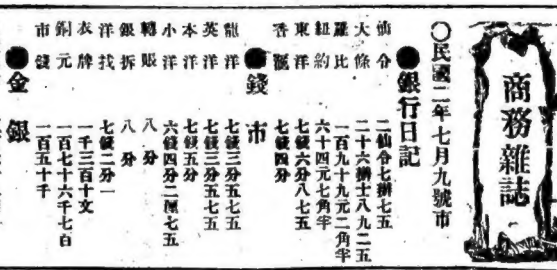 商務雜誌
○民國二年七月九號市
●銀行日記
仙令 二仙令七辦七五
大條 二十六辦士八九二五
羅比 一百九十九元二角半
紐約 六十四元七角半
東洋 七錢六分八七五
香 七錢四分
●錢市
龍洋 七錢三分五七五
英洋 七錢三分五七五
本洋 七錢五分
小洋 六錢四分二厘七五
轉賬 八分
銀拆 八分
洋找 七錢二分一
衣牌 一千三百十文
銅元 一百七十六千七百
市錢 一百五十千
●金銀